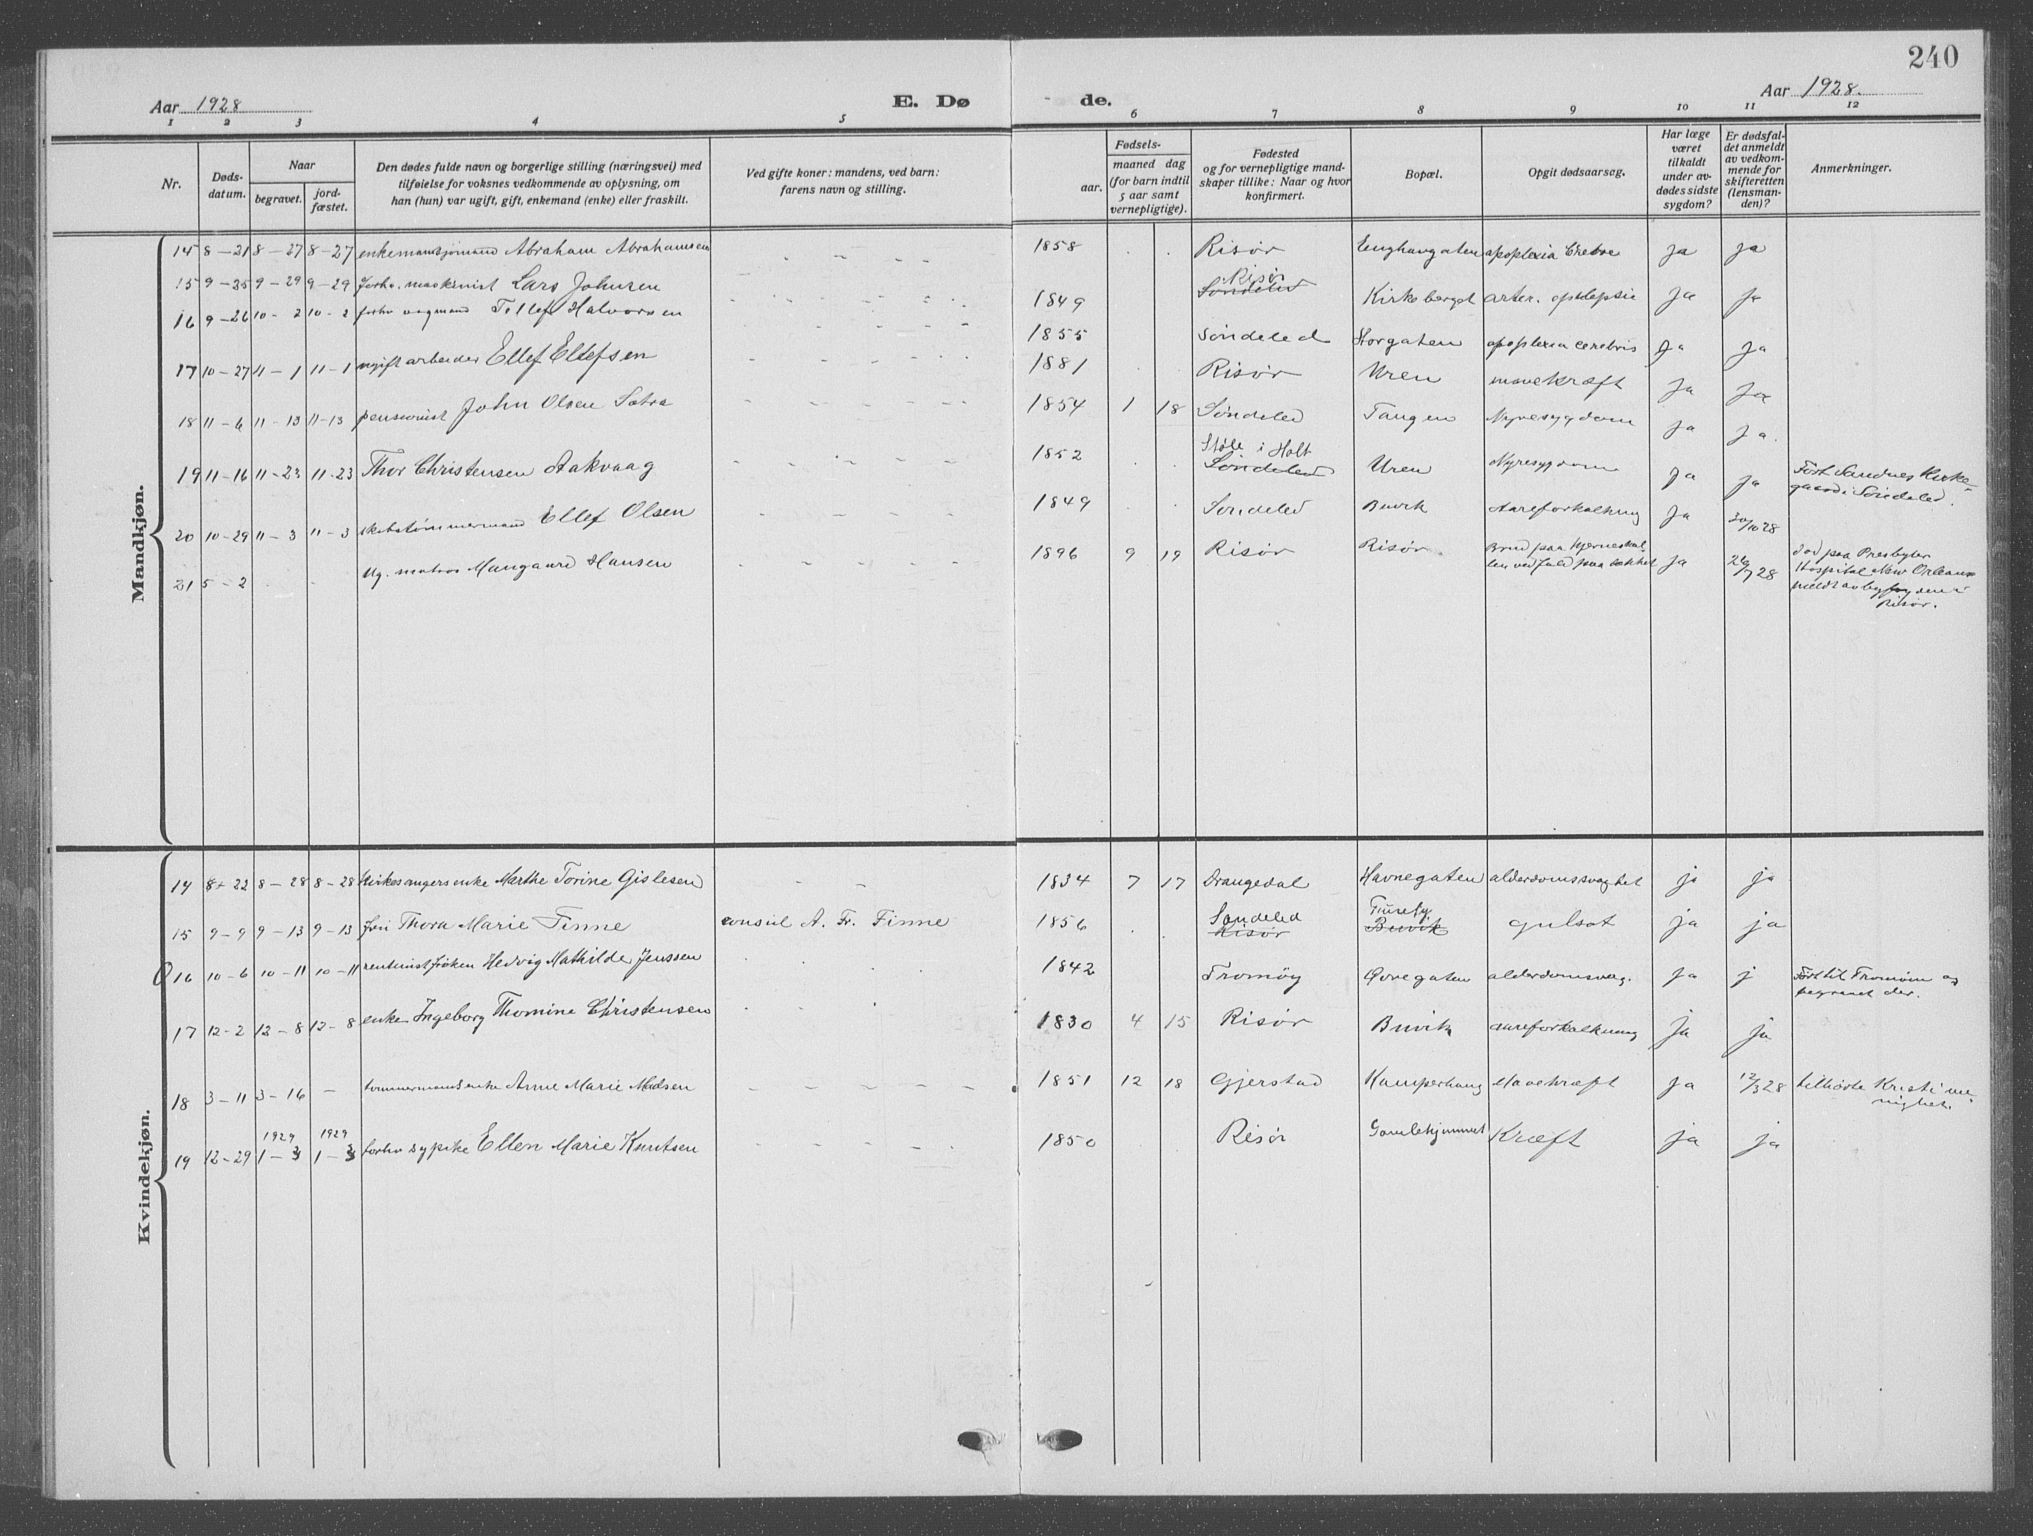 240
Aar 1928 E. Dø de. Aar 1928.
1 2 3 4 5 6 7 8 9 10 11 12
Nr. Døds-datum. Naar begravet. jord-fæstet. Den dødes fulde navn og borgerlige stilling (næringsvei) med tilføielse for voksnes vedkommende av oplysning, om han (hun) var ugift, gift, enkemand (enke) eller fraskilt. Ved gifte koner: mandens, ved barn: farens navn og stilling. Fødsels- aar. maaned dag (for barn indtil 5 aar samt vernepligtige). Fødested og for vernepligtige mandskaper tillike: Naar og hvor konfirmert. Bopæl. Opgit dødsaarsag. Har læge været tilkaldt under avdødes sidste sygdom? Er dødsfaldet anmeldt av vedkommende for skifteretten (lensmanden)? Anmerkninger.
Mandkjøn.
14 8-21 8-27 8-27 Abraham Abrahamsen 1858 Risør apoplexia ja ja
15 9-25 9-29 9-29 forhv. maskinist Lars Johnsen 1849 Risør Søndeled Kirkeberget arter. ja ja
16 9-26 10-2 10-2 forhv Tellef Halvorsen 1855 Søndeled Storgaten apoplexia cerebris ja ja
17 10-27 11-1 11-1 ugift arbeider Ellef Ellefsen 1881 Risør Uren mavekræft ja ja
18 11-6 11-13 11-13 pensionist John Olsen 1854 1 18 Søndeled Tangen Nyresygdom ja ja.
19 11-16 11-23 11-23 Thor Christensen Aakvaag 1852 i Holt Søndeled Uren Nyresygdom ja ja Ført Sandnes Kirke-
gaard i Søndeled.
20 10-29 11-3 11-3 skibstømmermand Ellef Olsen 1849 Søndeled Buvik Aareforkalkning ja 30/10 28
21 5-2 Ug. matros Mangaard Hansen 1896 9 19 Risør Risør. Brud paa Hjerneskal-
len ved fald paa dækket ja 26/7 28 død paa Presbyter
Hospital New Orleans
meldt av byfogden i
Risør.
Kvindekjøn.
14 8-22 8-28 8-28 Kirkesangers enke Marthe Torine Gislesen 1834 7 17 Drangedal Havnegaten alderdomssvaghet ja ja
15 9-9 9-13 9-13 fru Thora Marie Finne consul A. Fr. Finne 1856 Søndeled Risør Buvik gulsot ja ja
16 10-6 10-11 10-11 frøken Hedvig Mathilde Jenssen 1842 Tromøy alderdomssvag. ja j Ført til Tromøen og
begravet der.
17 12-2 12-8 12-8 enke Ingeborg Thomine Christensen 1830 4 15 Risør Buvik aareforkalkning ja ja
18 3-11 3-16 - tømmermands enke Anne Marie Madsen 1851 12 18 Gjerstad Kamperhaug Mavekræft ja 12/3 28 tilhørte Kristi me-
nighet.
19 12-29 1929 1-3 1929 1-3 forhv sypike Ellen Marie Knutsen 1850 Risør Gamlehjemmet Kræft ja ja